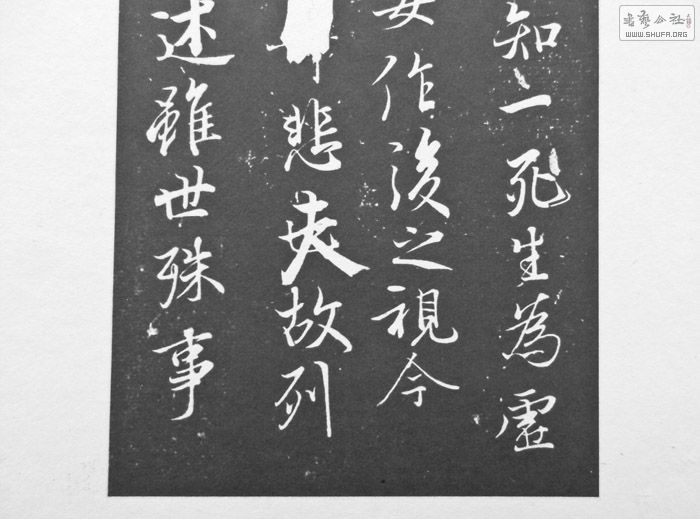 知一死生為虛
妄作後之視今
悲夫故列
述雖世殊事
書藝公社
WWW.SHUFA.ORG